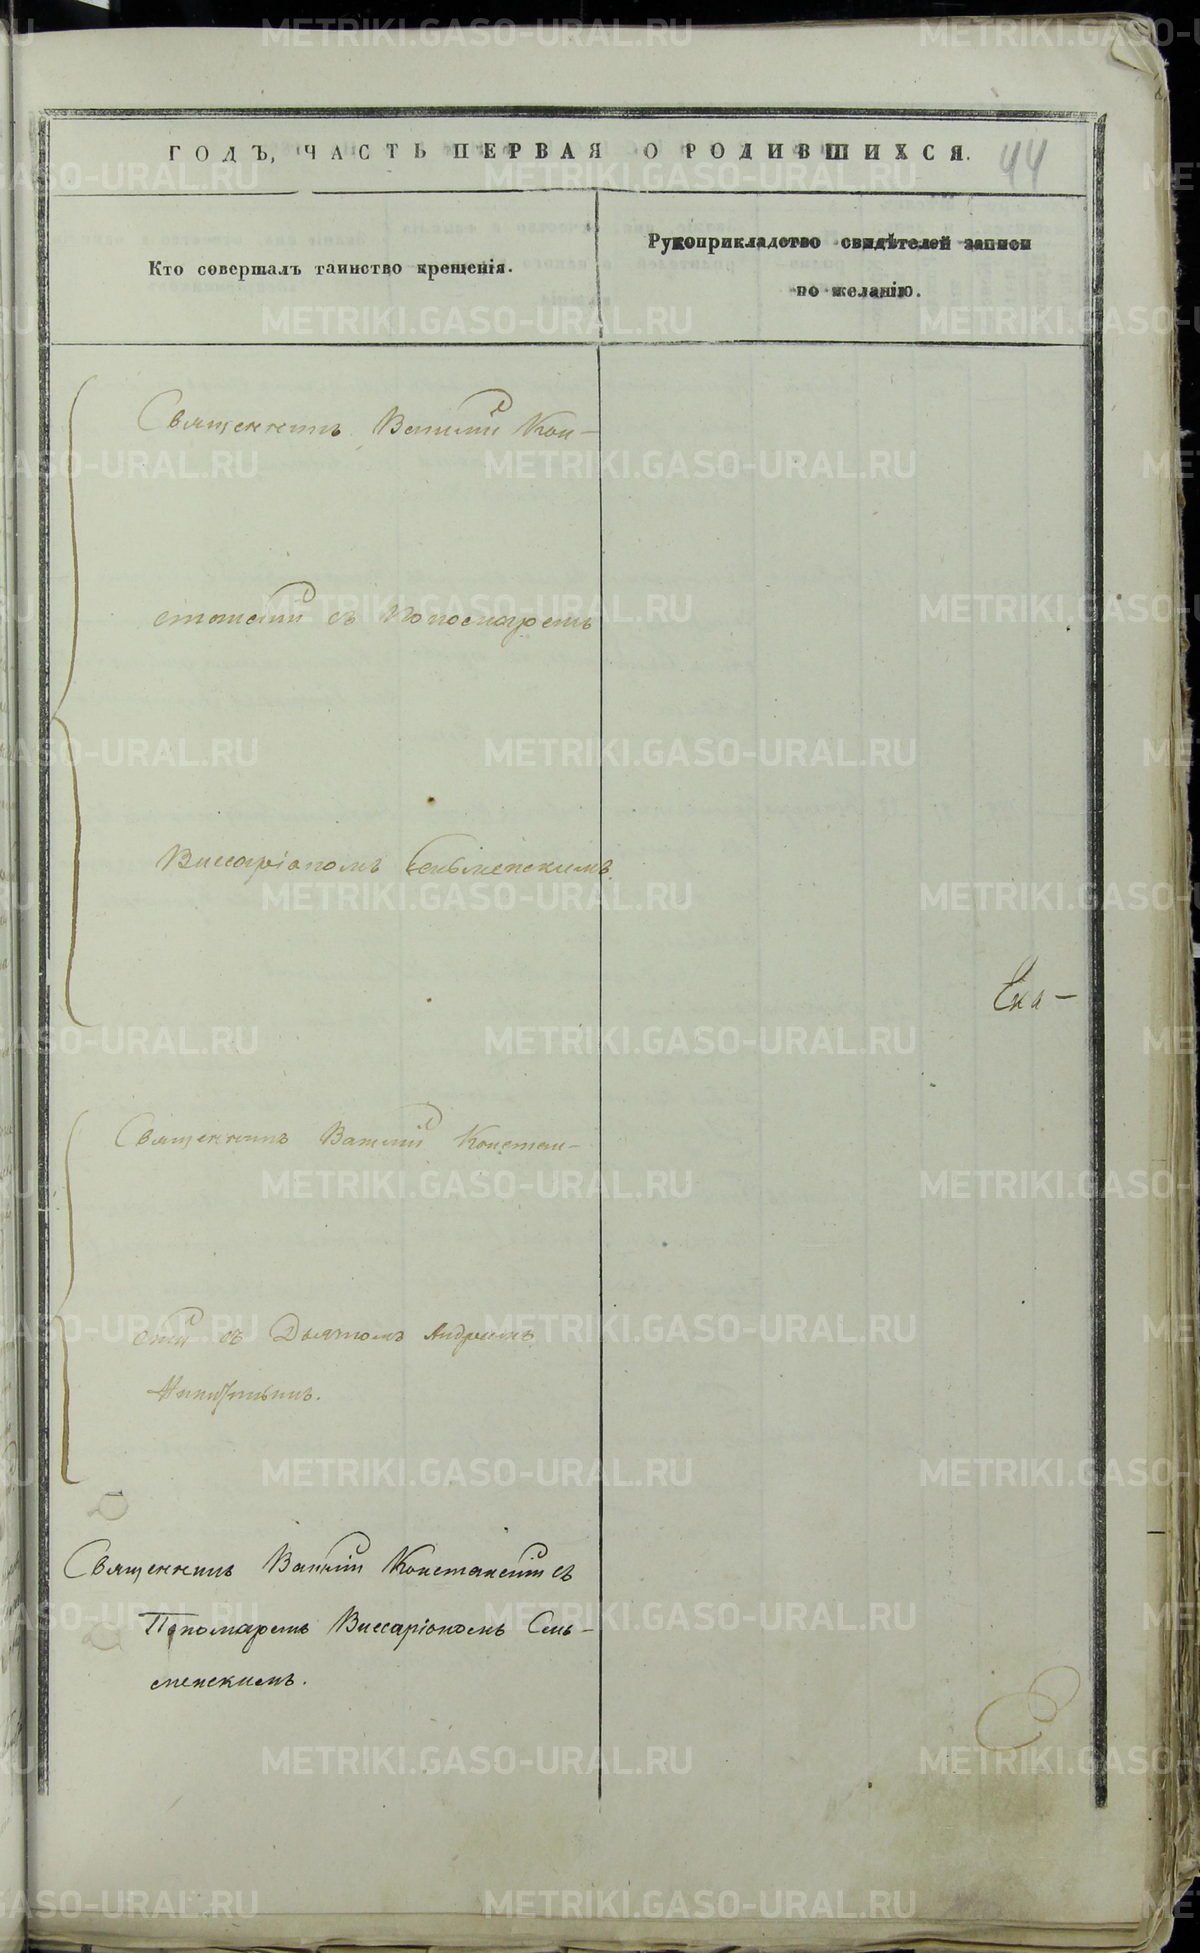 ГОДЪ, ЧАСТЬ ПЕРВАЯ О РОДИВШИХСЯ. 44
Кто совершалъ таинство крещенія.
Рукоприкладство свидѣтелей записи
по желанію.
Священникъ Василій Кон-
станскій съ Пономаремъ
Виссаріономъ Сельменскимъ.
Ека-
Священникъ Василій Констан-
скій съ Дьячкомъ Андреемъ
Священникъ Василій Констанскій съ
Пономаремъ Виссаріономъ Сель-
менскимъ.
METRIKI.GASO-URAL.RU